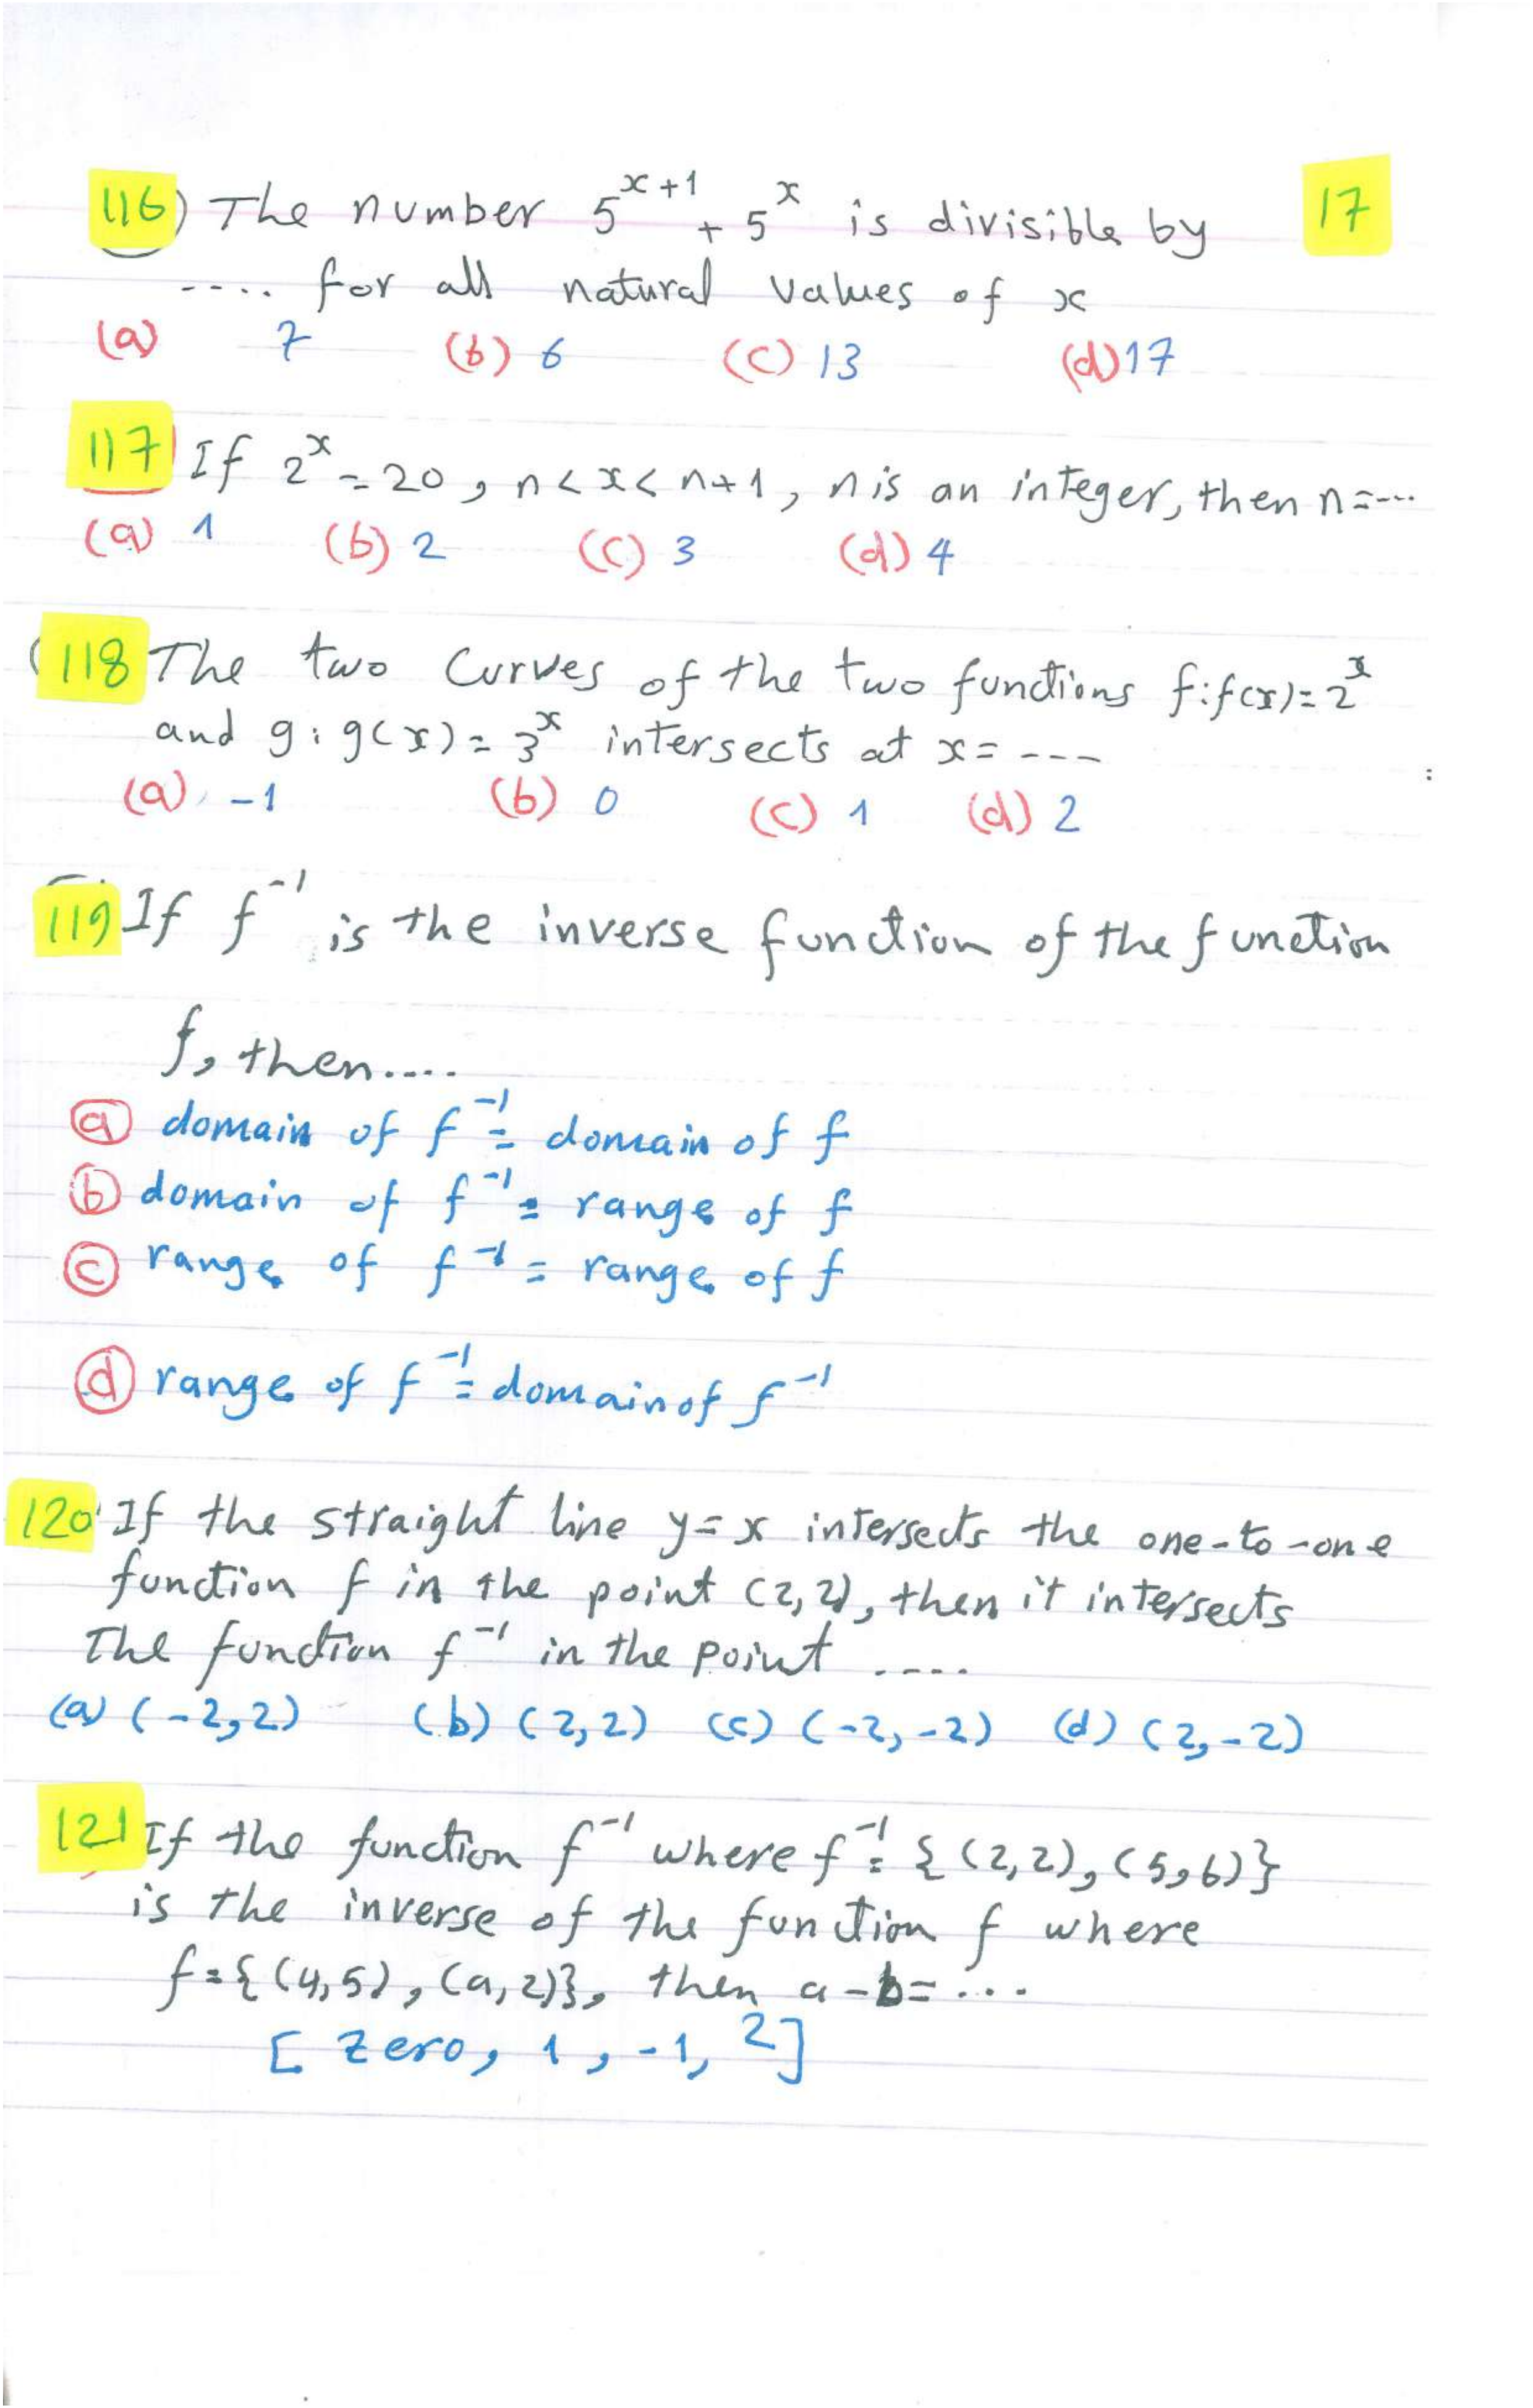 116) The number 5^{x+1} + 5^x is divisible by
17
.... for all natural values of x
(a) 7 (b) 6 (c) 13 (d) 17
117) If 2^x = 20, n < x < n+1, n is an integer, then n = ...
(a) 1 (b) 2 (c) 3 (d) 4
(118 The two curves of the two functions f: f(x) = 2^x
and g: g(x) = 3^x intersects at x = ---
(a) -1 (b) 0 (c) 1 (d) 2
119) If f^{-1} is the inverse function of the function
f, then....
(a) domain of f^{-1} = domain of f
(b) domain of f^{-1} = range of f
(c) range of f^{-1} = range of f
(d) range of f^{-1} = domain of f^{-1}
120 If the straight line y = x intersects the one-to-one
function f in the point (2,2), then it intersects
The function f^{-1} in the point ....
(a) (-2,2) (b) (2,2) (c) (-2,-2) (d) (2,-2)
121 If the function f^{-1} where f^{-1} = {(2,2), (5,6)}
is the inverse of the function f where
f = {(4,5), (a,2)}, then a - b = ...
[zero, 1, -1, 2]